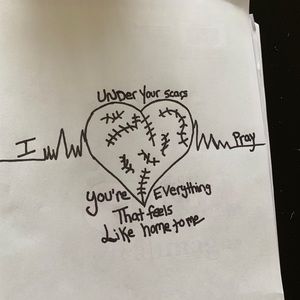 UNDER Your scars
I Pray
you're Everything
That feels
Like home to me